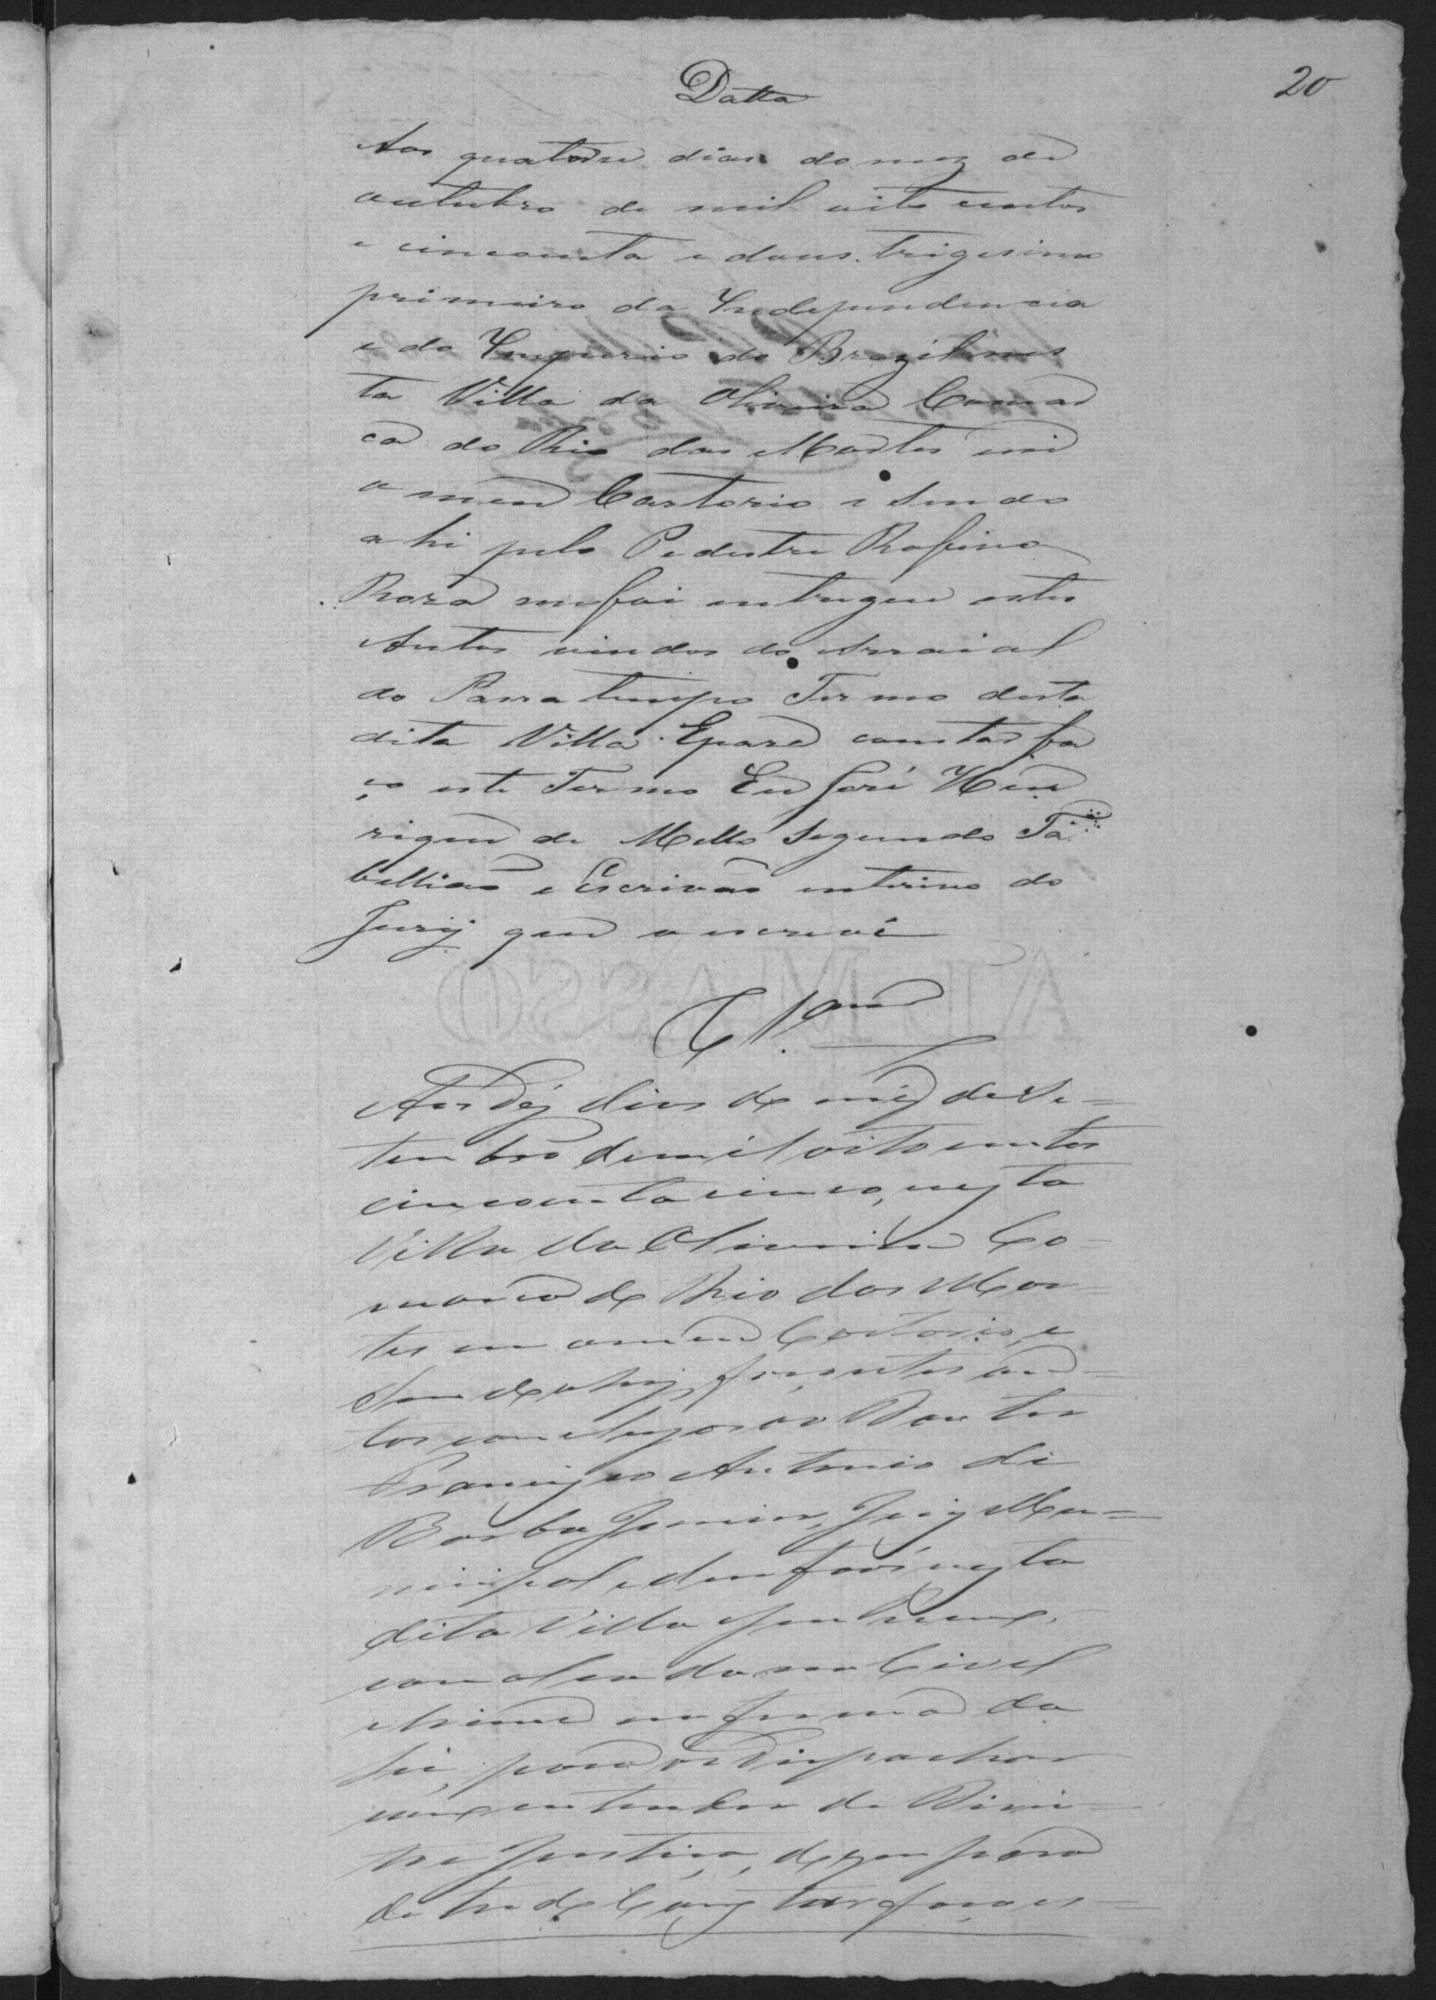 20
Datta
Aos quatorse dias do mez de
outubro de mil oito centos
e cincoenta e dous. trigesimo
primeiro da Independencia
e do Imperio do Brazil nes
ta Villa da Oliveira Comar
ca do Rio das Mortes em
o meu Cartorio e sendo
ahi pelo Pedestre Rofino
Roza me foi entregue estes
Autos vindos do Arraial
do Passa tempo Termo desta
dita Villa. Epara constar fa
ço este Termo Eu José Hen
riques de Mello Segundo Ta
bellião e Escrivão interino do
Jury que o escrevi
Aos déz dias do mez de Se=
tembro de mil oito centos
cincoenta cinco, nesta
Villa da Oliveira Co-
marca do Rio das Mor-
tes em o meu Cartorio, e
sendo ahy, faço estes au=
tos conclusos ao Doutor
Francisco Antonio de
Borba Junior, Juiz Mu=
nicipal e dos Orfãos nesta
dita Villa
no Civel
e Crime na forma da
Lei, para os Dispachar
como entender de Direi=
to e Justiça, do que para
de tudo Constar faço es=